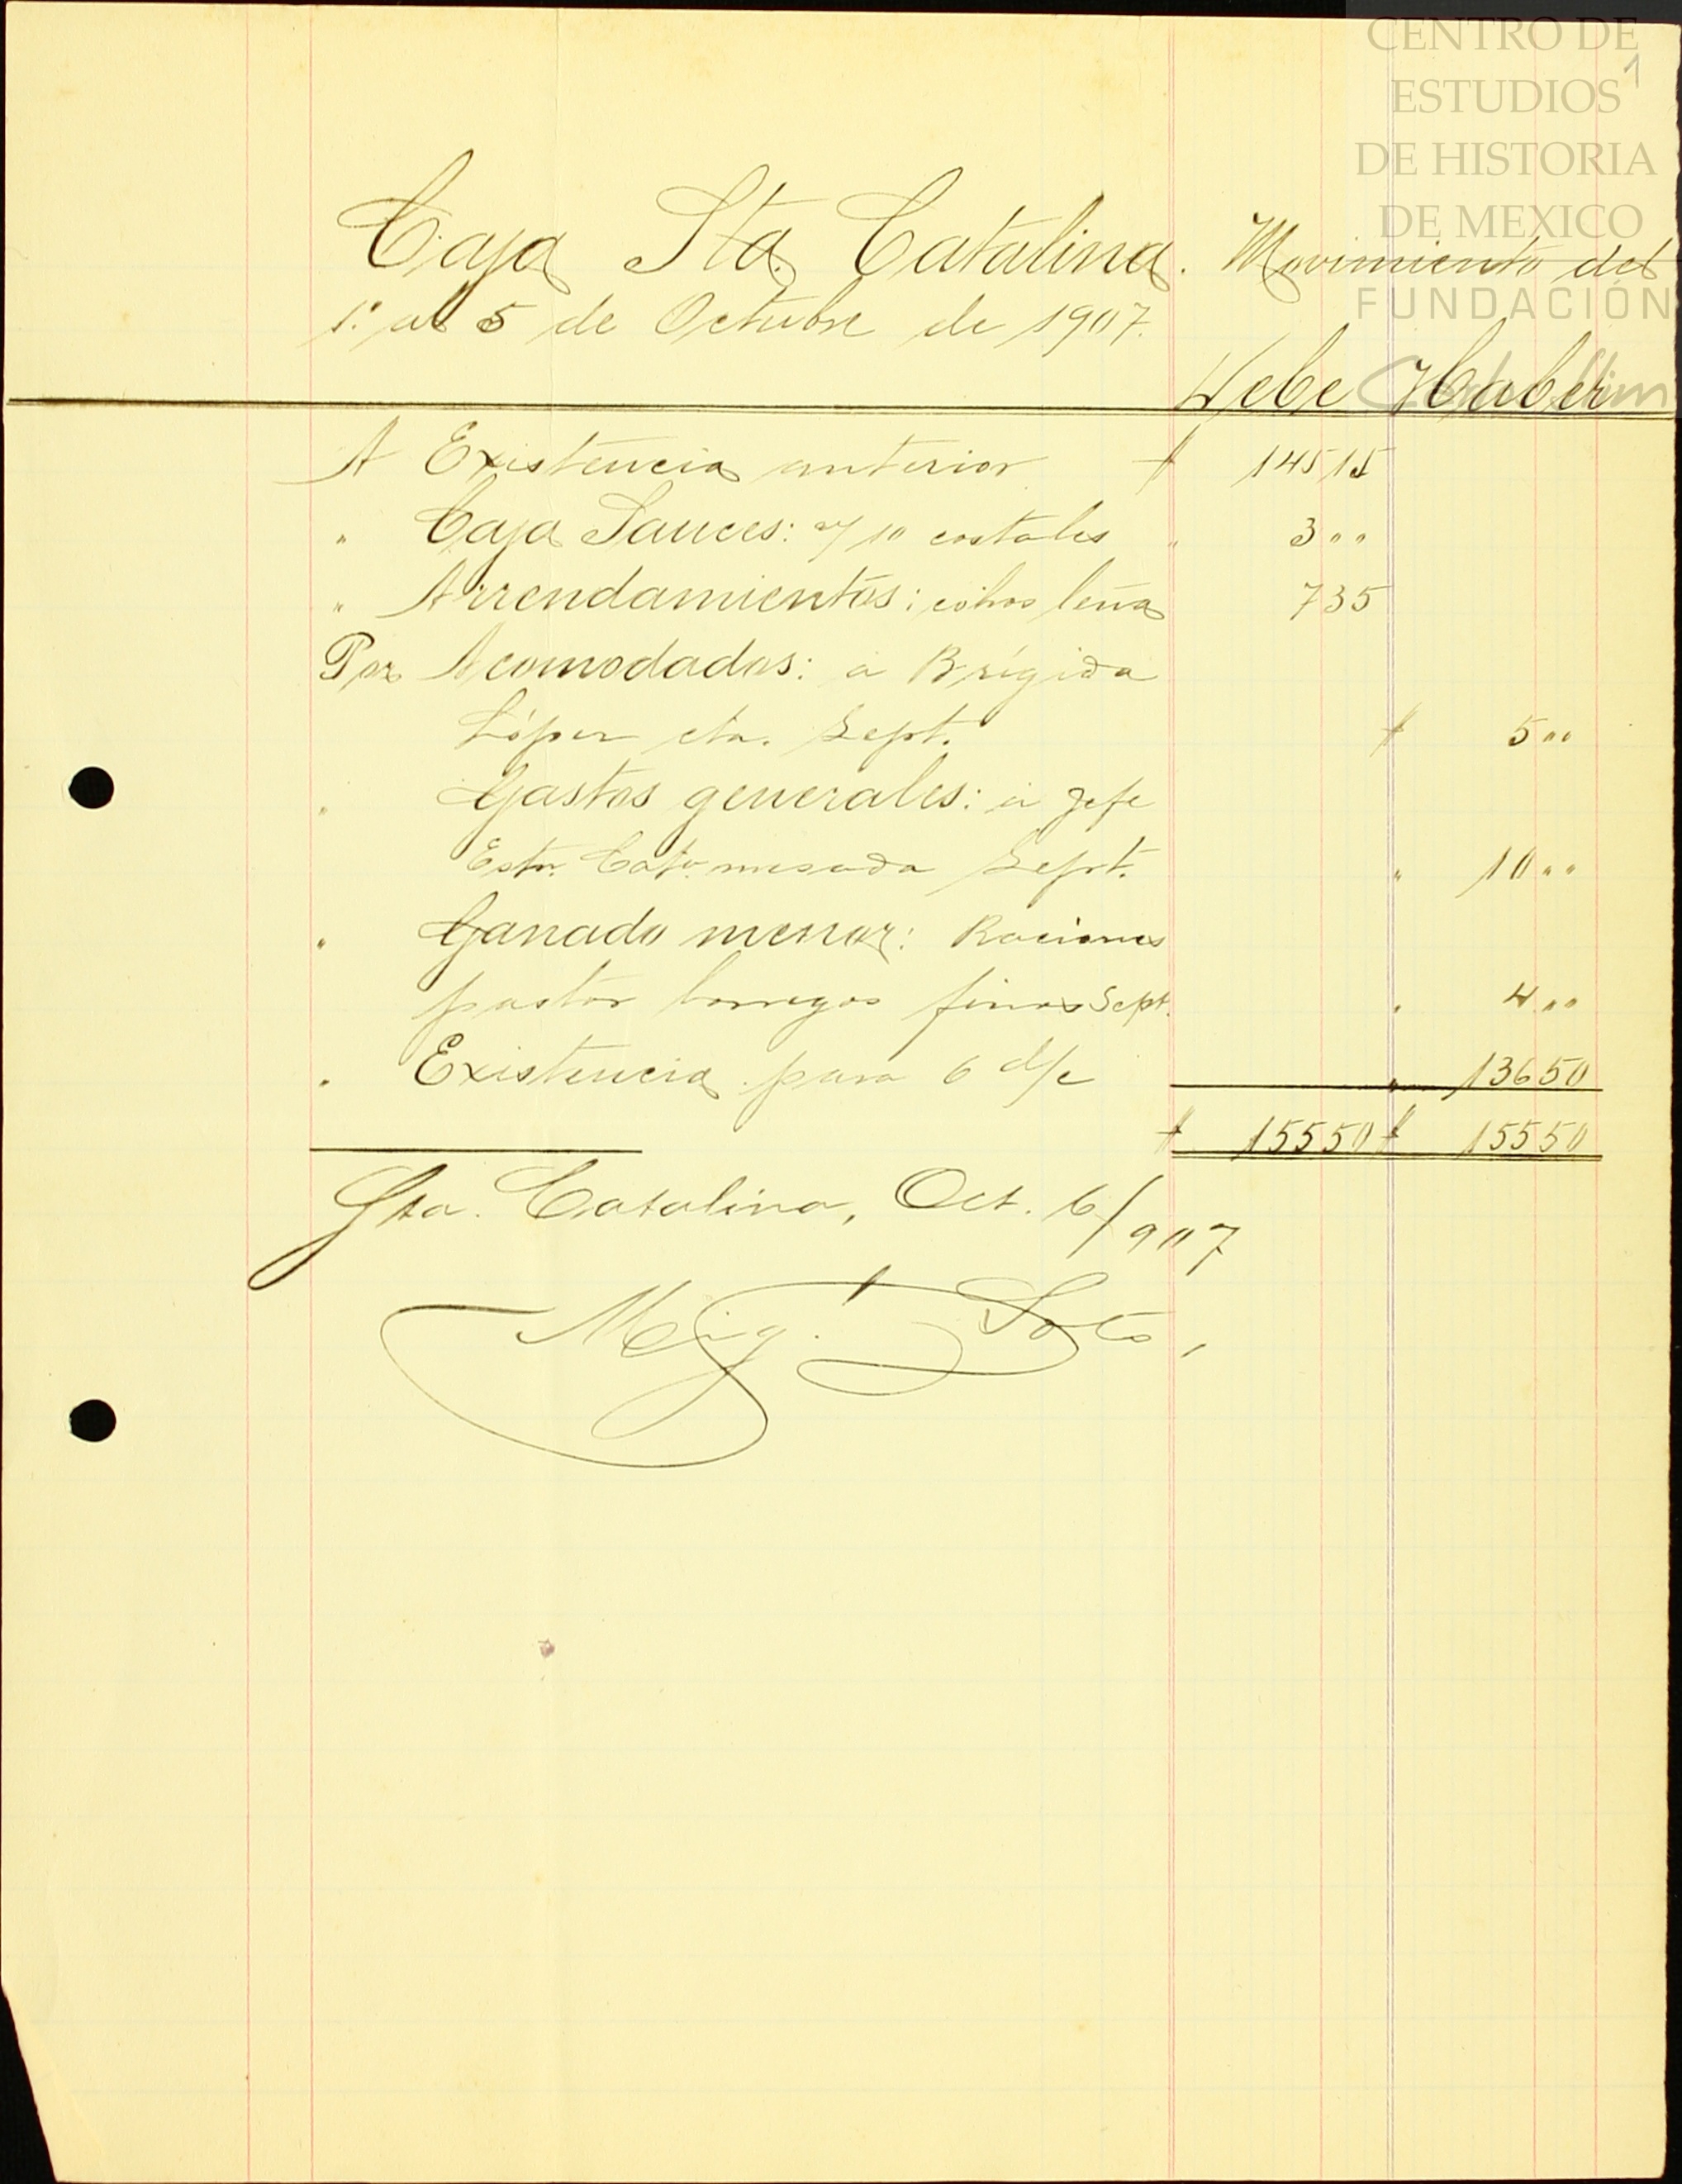 CENTRO DE
ESTUDIOS
1
DE HISTORIA
DE MEXICO
FUNDACIÓN
Caja Sta. Catalina. Movimiento del
1º al 5 de Octubre de 1907.
Debe Haber
A Existencia anterior $ 145 15
" Caja Sauces: v/ 10 costales " 3 " "
" Arrendamientos: cobros leña 7 35
Por Acomodados: á Brígida
López cta. Sept. $ 5 " "
" Gastos generales: á Jefe
Estn. Cato. mesada Sept. " 10 " "
" Ganado menor: Raciones
pastor borregos finos Sept. " 4 " "
" Existencia para 6 d/c " 136 50
$ 155 50 $ 155 50
Sta. Catalina, Oct. 6/907
Mig. Soto,